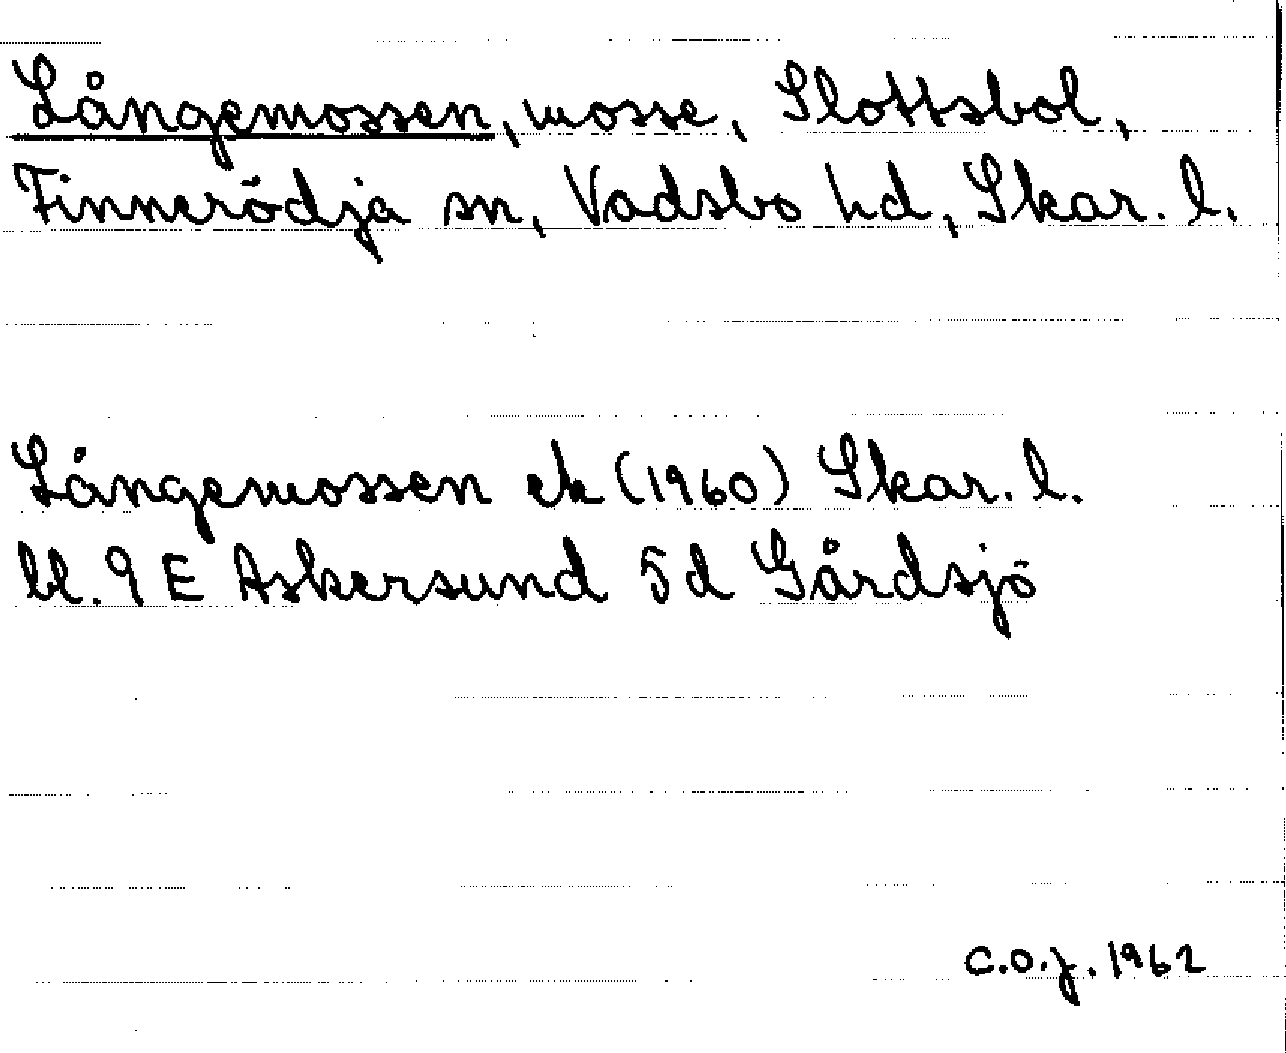 Långemossen, mosse, Slottsbol,
Finnerödja sn, Vadsbo hd, Skar. l.
Långemossen ek (1960) Skar. l.
bl. 9 E Askersund 5 d Gårdsjö
C.O.J. 1962